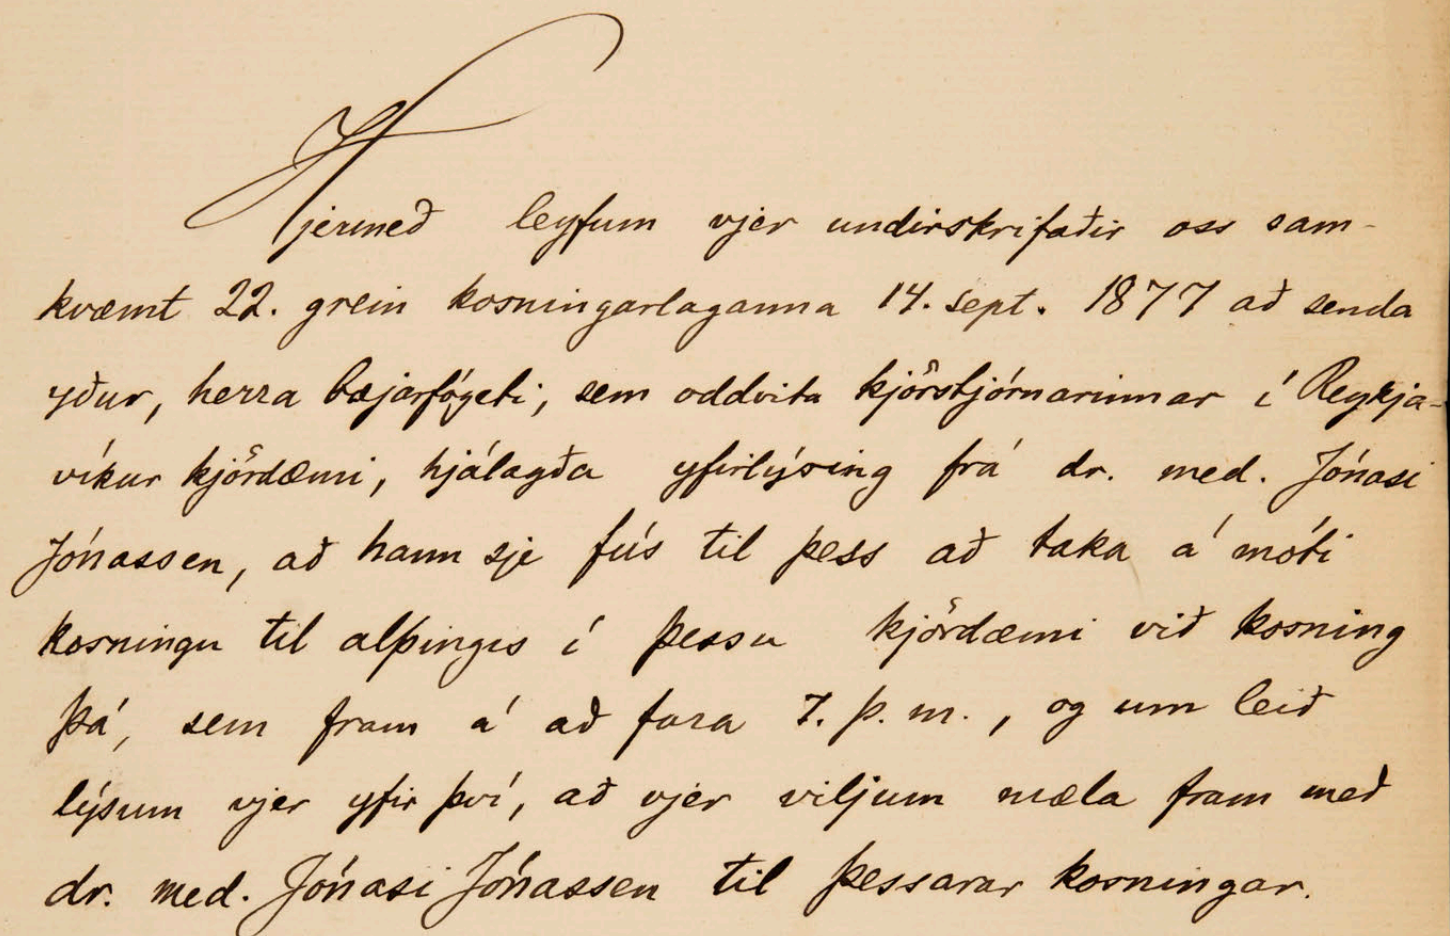 Hjermeð leyfum vjer undirskrifaðir oss sam-
kvæmt 22. grein kosningarlaganna 14. sept. 1877 að senda
yður, herra bæjarfógeti, sem oddvita kjörstjórnarinnar í Reykja-
víkur kjördæmi, hjálagða yfirlýsing frá dr. med. Jónasi
Jónassen, að hann sje fús til þess að taka á móti
kosningu til alþingis í þessu kjördæmi við kosning
þá, sem fram á að fara 7. þ. m., og um leið
lýsum vjer yfir því, að vjer viljum mæla fram með
dr. med. Jónasi Jónassen til þessarar kosningar.